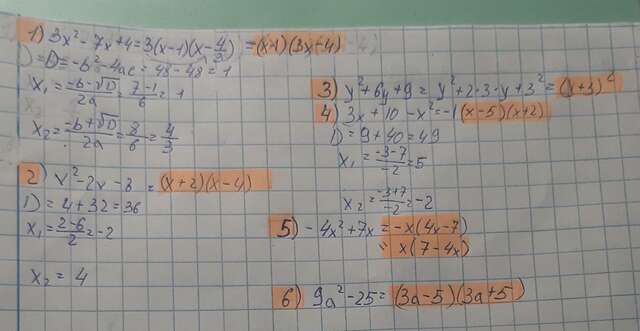 1) 3x² - 7x + 4 = 3(x-1)(x-4/3) = (x-1)(3x-4)
D = D = -b² - 4ac = 48 - 48 = 1
x₁ = (-b-√D)/2a = (7-1)/6 = 1
x₂ = (-b+√D)/2a = 8/6 = 4/3
2) x² - 2x - 8 = (x+2)(x-4)
D = 4 + 32 = 36
x₁ = (2-6)/2 = -2
x₂ = 4
3) y² + 6y + 9 = y² + 2·3·y + 3² = (y+3)²
4) 3x + 10 - x² = -1(x-5)(x+2)
D = 9 + 40 = 49
x₁ = (-3-7)/-2 = 5
x₂ = (-3+7)/-2 = -2
5) -4x² + 7x = -x(4x-7)
= x(7-4x)
6) 9a² - 25 = (3a-5)(3a+5)